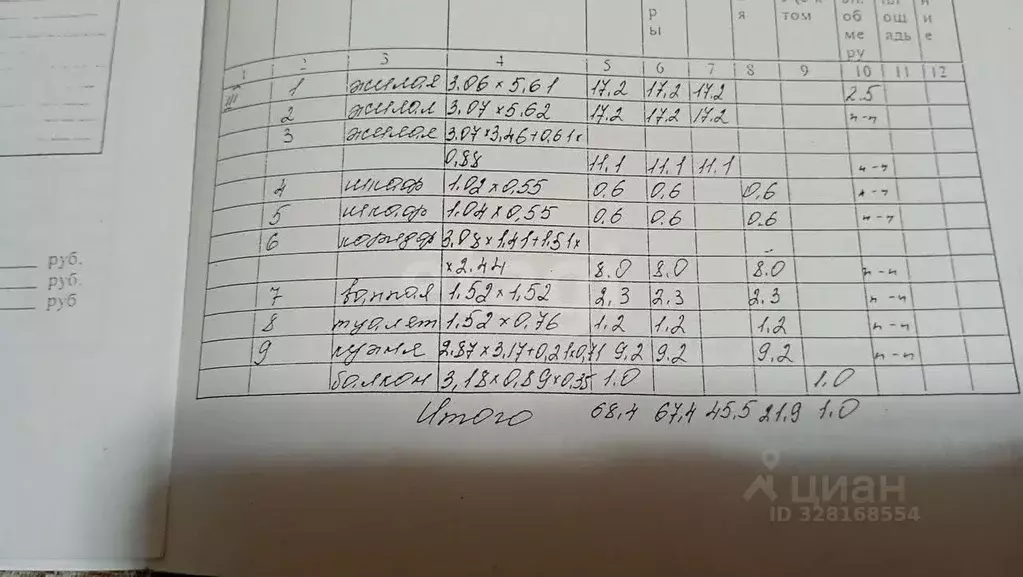 р я том об ощ и
ы ме адь е
ру
1 2 3 4 5 6 7 8 9 10 11 12
III 1 жилая 3.06 × 5,61 17.2 17.2 17.2 2.5
2 жилая 3.07 × 5.62 17.2 17.2 17.2 "-"
3 жилая 3.07×3,46+0,61×
0,88 11.1 11.1 11.1 "-"
4 шкаф 1.02 × 0.55 0.6 0.6 0.6 "-"
5 шкаф 1.04 × 0.55 0.6 0.6 0.6 "-"
6 коридор 3.08×1,41+1,51×
×2.44 8.0 8.0 8.0 "-"
руб. 7 ванная 1.52 × 1,52 2,3 2.3 2.3 "-"
руб. 8 туалет 1.52 × 0,76 1.2 1.2 1.2 "-"
руб 9 кухня 2.87×3,17+0,21×0,71 9.2 9.2 9.2 "-"
балкон 3,18×0,89×0,35 1.0 1.0
Итого 68.4 67,4 45.5 21.9 1.0
циан
ID 328168554